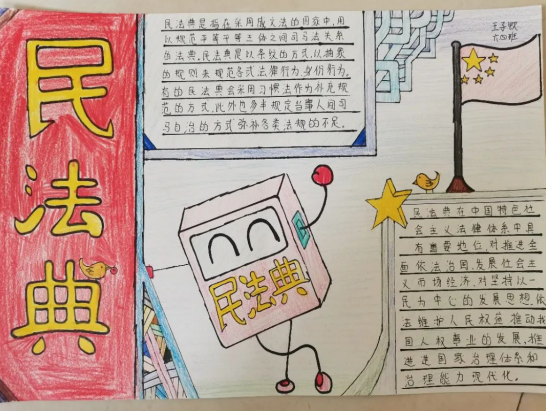 民法典
民法典是指在采用成文法的国家中,用
以规范平等主体之间司与法关系
的法典,民法典是以条款的方式,以抽象
的规则来规范各式法律行为,身份行为.
有的民法典会采用习惯法作为补充规
范的方式,此外也多半规定当事人间司
与自治的方式弥补各类法规的不足。
六四班
民法典
民法典在中国特色社
会主义法律体系中具
有重要地位,对推进全
面依法治国,发展社会主
义市场经济,对坚持以
民为中心的发展思想依
法维护人民权益推动我
国人权事业的发展,推
进国家治理体系和
治理能力现代化。